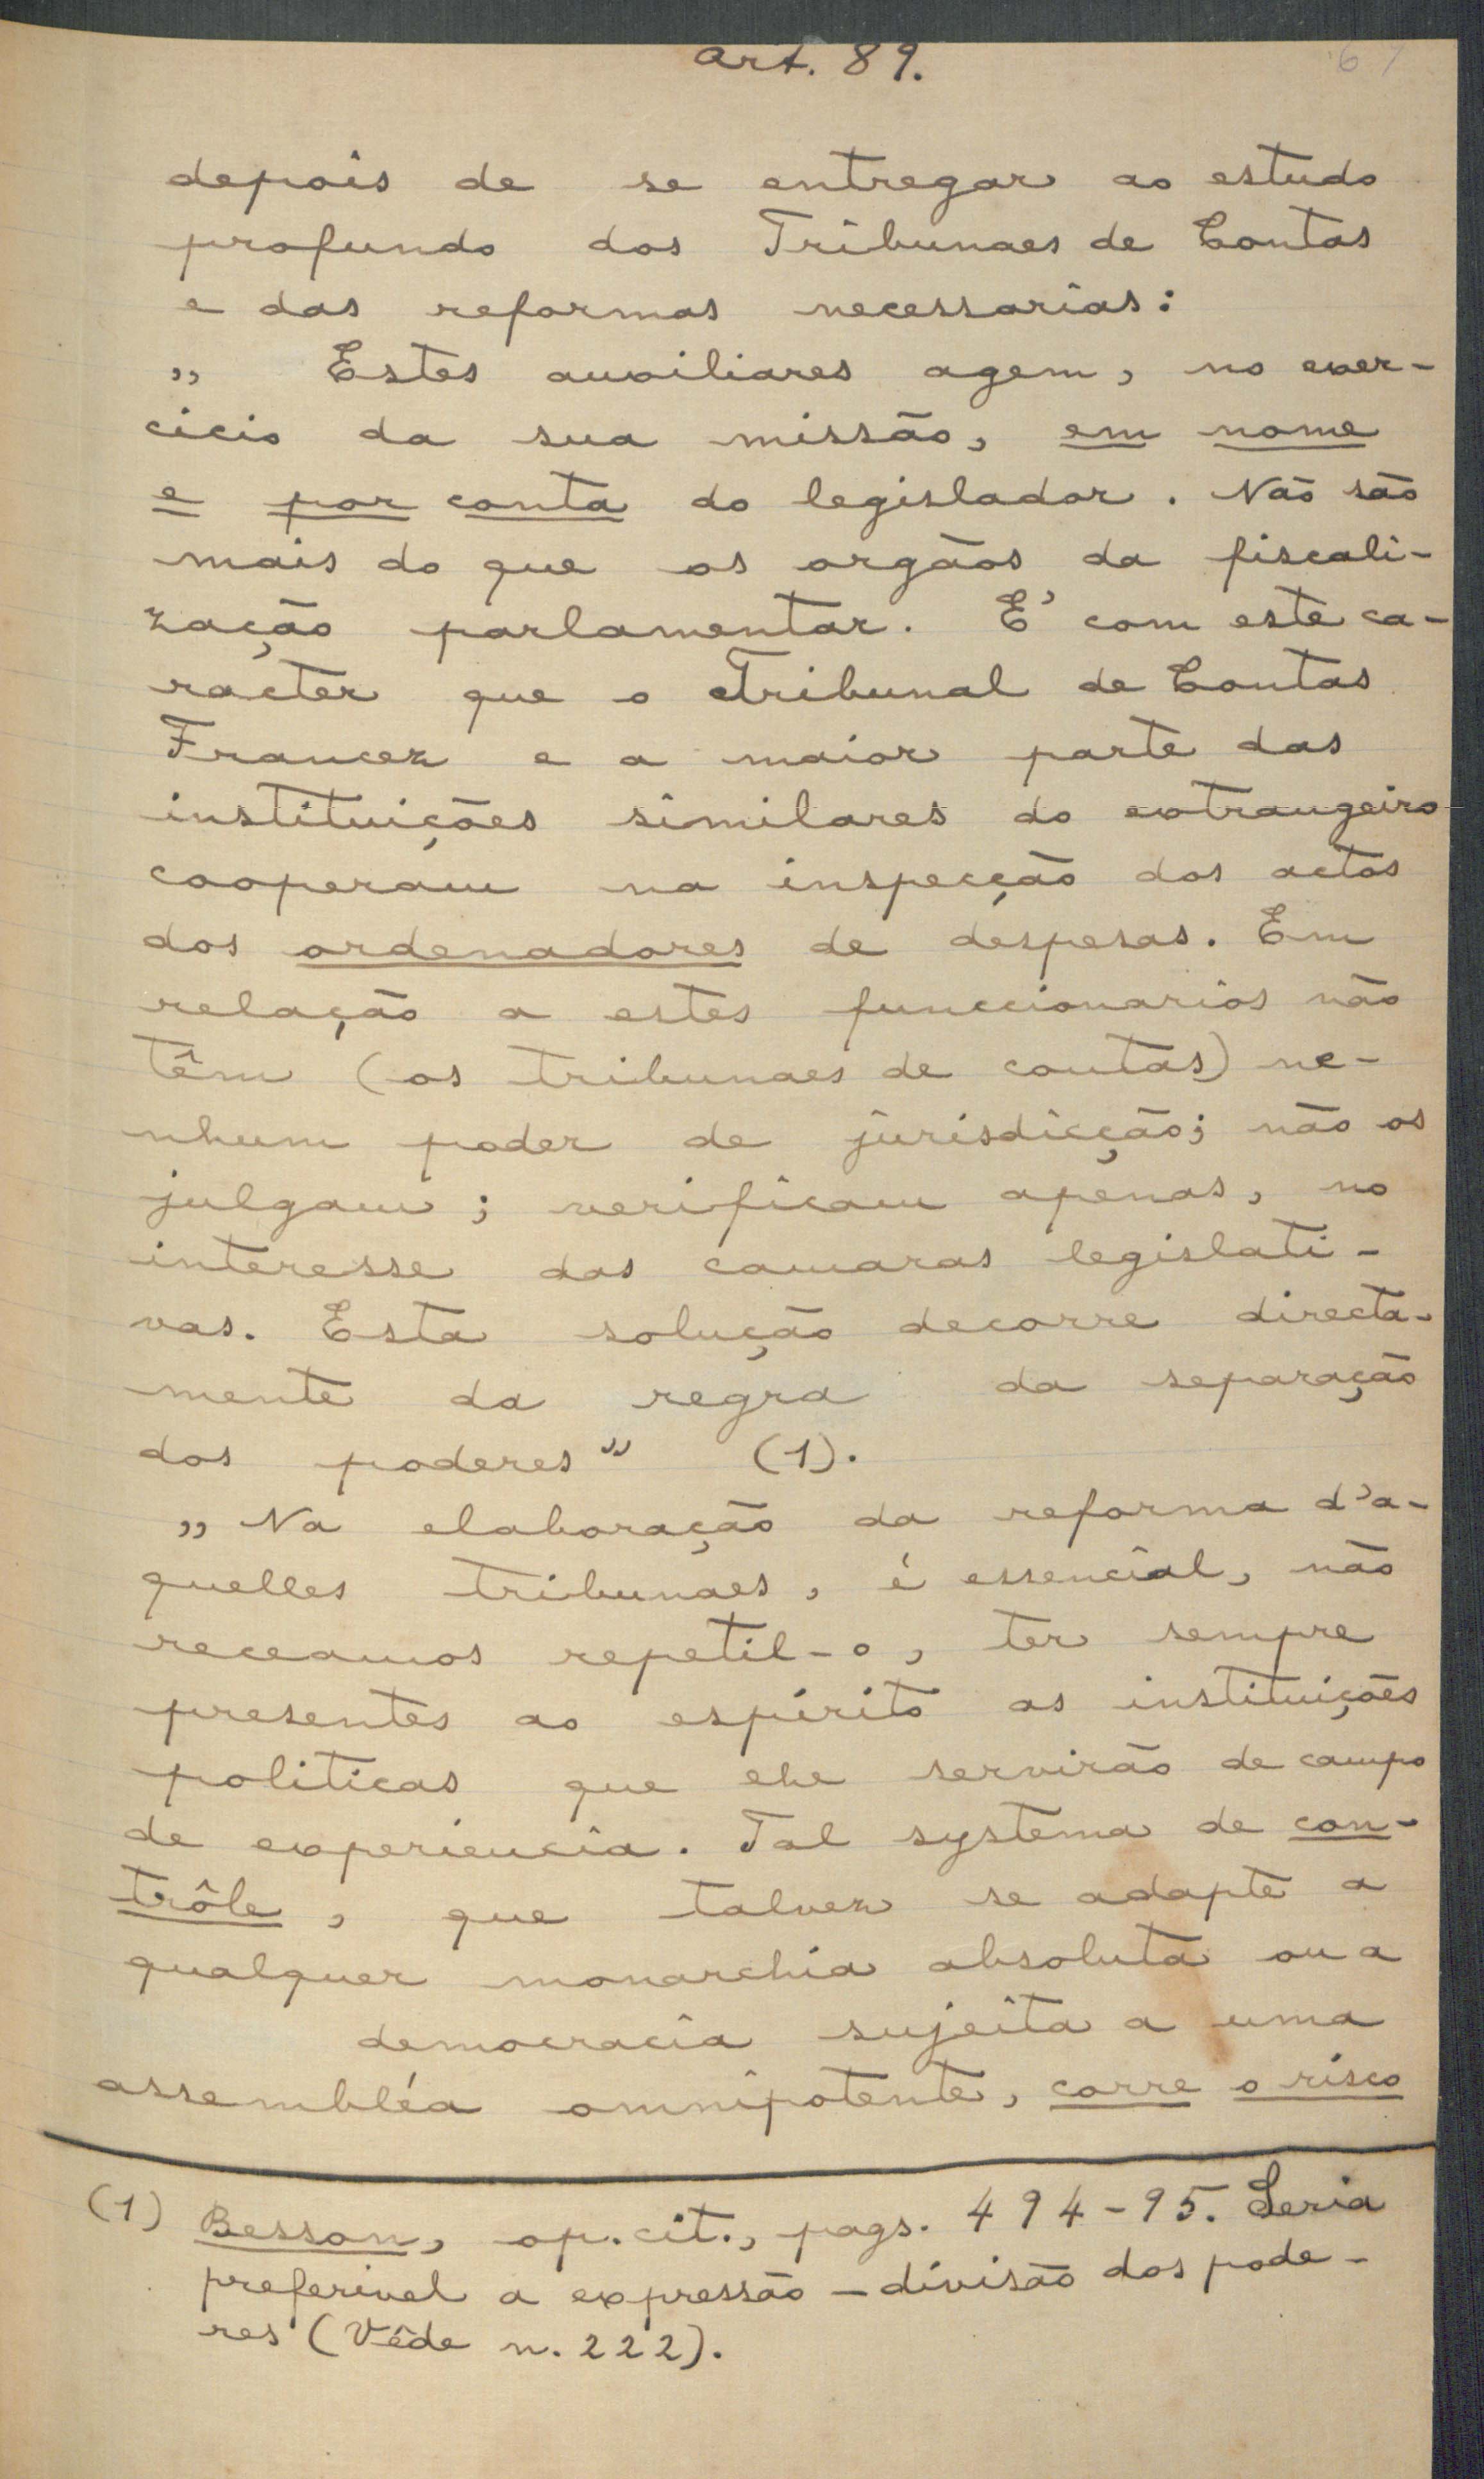 Art. 89.
67
depois de se entregar ao estudo
profundo dos Tribunaes de Contas
e das reformas necessarias:
„ Estes auxiliares agem, no exer-
cicio da sua missão, em nome
e por conta do legislador. Não são
mais do que os orgãos da fiscali-
zação parlamentar. E' com este ca-
racter que o Tribunal de Contas
Francez e a maior parte das
instituições similares do extrangeiro
cooperam na inspecção dos actos
dos ordenadores de despesas. Em
relação a estes funccionarios não
têm (os tribunaes de contas) ne-
nhum poder de jurisdicção; não os
julgam; verificam apenas, no
interesse das camaras legislati-
vas. Esta solução decorre directa-
mente da regra da separação
dos poderes" (1).
„ Na elaboração da reforma d'a-
quelles tribunaes, é essencial, não
receamos repetil-o, ter sempre
presentes ao espirito as instituições
politicas que lhe servirão de campo
de experiencia. Tal systema de con-
trôle, que talvez se adapte a
qualquer monarchia absoluta ou a
democracia sujeita a uma
assembléa omnipotente, corre o risco
(1) Besson, op. cit., pags. 494-95. Seria
preferivel a expressão - divisão dos pode-
res (Vêde n. 222).